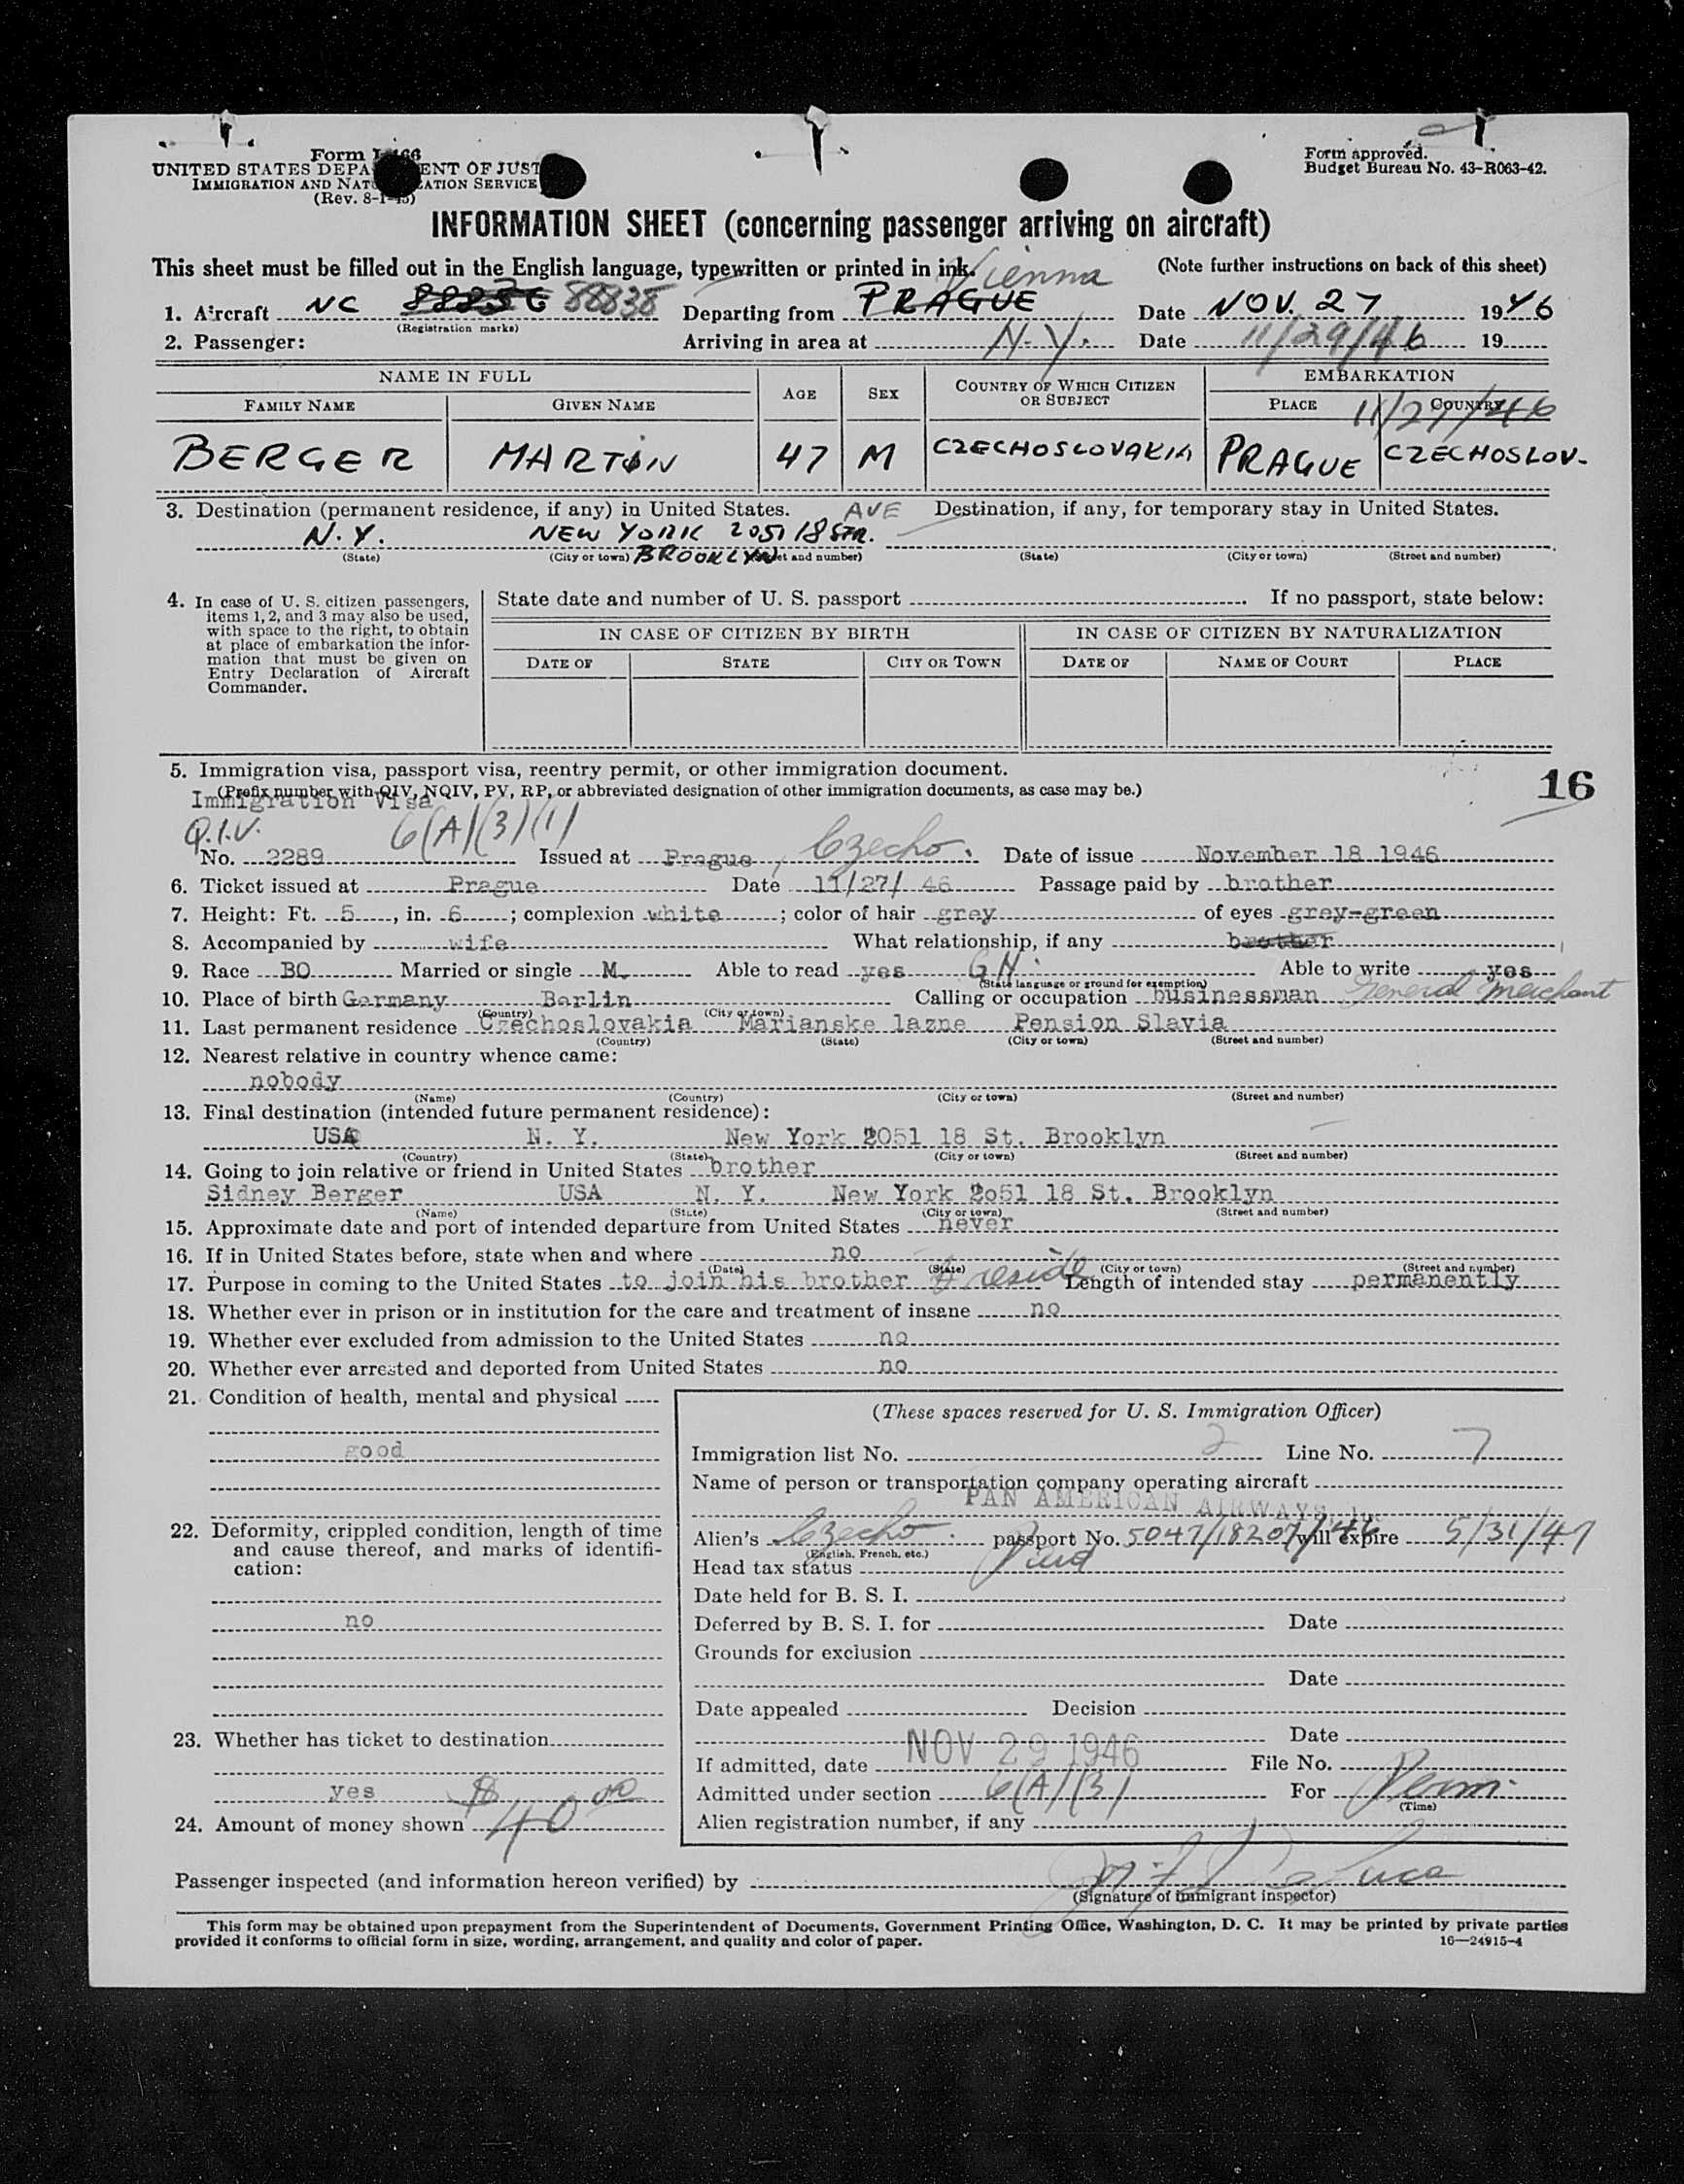 Form I-466
UNITED STATES DEPA ENT OF JUST
IMMIGRATION AND NAT ATION SERVICE
(Rev. 8-1-45)
Form approved.
Budget Bureau No. 43-R063-42.
INFORMATION SHEET (concerning passenger arriving on aircraft)
This sheet must be filled out in the English language, typewritten or printed in ink. (Note further instructions on back of this sheet)
Vienna
1. Aircraft NC 88838 Departing from PRAGUE Date NOV. 27 1946
(Registration marks)
2. Passenger: Arriving in area at N.Y. Date 11/29/46 19
NAME IN FULL AGE SEX COUNTRY OF WHICH CITIZEN OR SUBJECT EMBARKATION
FAMILY NAME GIVEN NAME PLACE COUNTRY 11/27/46
BERGER MARTIN 47 M CZECHOSLOVAKIA PRAGUE CZECHOSLOV-
3. Destination (permanent residence, if any) in United States. AVE Destination, if any, for temporary stay in United States.
N.Y. NEW YORK 2051 18 STR.
(State) (City or town) BROOKLYN (Street and number) (State) (City or town) (Street and number)
4. In case of U. S. citizen passengers, items 1, 2, and 3 may also be used, with space to the right, to obtain at place of embarkation the information that must be given on Entry Declaration of Aircraft Commander.
State date and number of U. S. passport . If no passport, state below:
IN CASE OF CITIZEN BY BIRTH IN CASE OF CITIZEN BY NATURALIZATION
DATE OF STATE CITY OR TOWN DATE OF NAME OF COURT PLACE
5. Immigration visa, passport visa, reentry permit, or other immigration document.
16
(Prefix number with QIV, NQIV, PV, RP, or abbreviated designation of other immigration documents, as case may be.)
Immigration Visa
Q.I.V. 6(A)(3)(1)
No. 2289 Issued at Prague, Czecho. Date of issue November 18 1946
6. Ticket issued at Prague Date 11/27/ 46 Passage paid by brother
7. Height: Ft. 5, in. 6; complexion white; color of hair grey of eyes grey-green
8. Accompanied by wife What relationship, if any brother
9. Race BO Married or single M. Able to read yes GH. Able to write yes
(State language or ground for exemption)
10. Place of birth Germany Berlin Calling or occupation businessman General Merchant
(Country) (City or town)
11. Last permanent residence Czechoslovakia Marianske lazne Pension Slavia
(Country) (State) (City or town) (Street and number)
12. Nearest relative in country whence came:
nobody
(Name) (Country) (City or town) (Street and number)
13. Final destination (intended future permanent residence):
USA N. Y. New York 2051 18 St. Brooklyn
(Country) (State) (City or town) (Street and number)
14. Going to join relative or friend in United States brother
Sidney Berger USA N. Y. New York 2o51 18 St. Brooklyn
(Name) (State) (City or town) (Street and number)
15. Approximate date and port of intended departure from United States never
16. If in United States before, state when and where no
(Date) (State) (City or town) (Street and number)
17. Purpose in coming to the United States to join his brother & reside Length of intended stay permanently
18. Whether ever in prison or in institution for the care and treatment of insane no
19. Whether ever excluded from admission to the United States no
20. Whether ever arrested and deported from United States no
21. Condition of health, mental and physical
good
22. Deformity, crippled condition, length of time and cause thereof, and marks of identification:
no
23. Whether has ticket to destination
yes
24. Amount of money shown $40.00
(These spaces reserved for U. S. Immigration Officer)
Immigration list No. 2 Line No. 7
Name of person or transportation company operating aircraft
PAN AMERICAN AIRWAYS
Alien's Czecho. passport No. 5047/18207/46 will expire 5/31/47
(English, French, etc.)
Head tax status Paid
Date held for B. S. I.
Deferred by B. S. I. for Date
Grounds for exclusion
Date
Date appealed Decision
Date
If admitted, date NOV 29 1946 File No.
Admitted under section 6(A)(3) For Perm.
(Time)
Alien registration number, if any
Passenger inspected (and information hereon verified) by
(Signature of immigrant inspector)
This form may be obtained upon prepayment from the Superintendent of Documents, Government Printing Office, Washington, D. C. It may be printed by private parties
provided it conforms to official form in size, wording, arrangement, and quality and color of paper. 16—24915-4